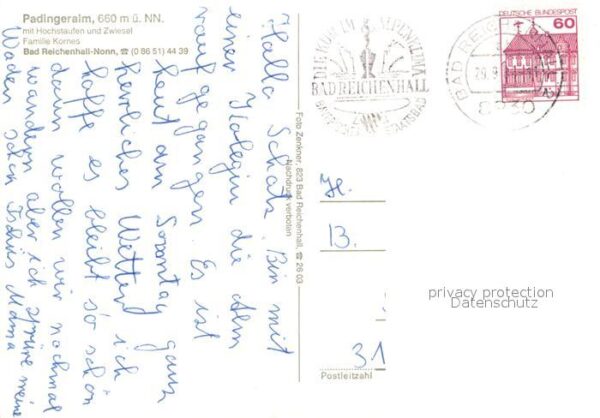 Padingeralm, 660 m ü. NN.
mit Hochstaufen und Zwiesel
Familie Kornes
Bad Reichenhall-Nonn, ☎ (0 86 51) 44 39
Hallo Schatz. Bin mit
einer Kolegin die Alm
rauf gegangen. Es ist
heut am Sonntag ganz
herrliches Wetter ich
hoffe es bleibt so schön
dann wollen wir nochmal
wandern aber ich spüre meine
Waden schon Tschüs Mama
Foto Zenkner, 823 Bad Reichenhall, ☎ 26 03
Nachdruck verboten
BAD REICHENHALL
BAYERISCHES STAATSBAD
DEUTSCHE BUNDESPOST
60
BAD REICHENHALL
8230
B.
31
Postleitzahl
privacy protection
Datenschutz